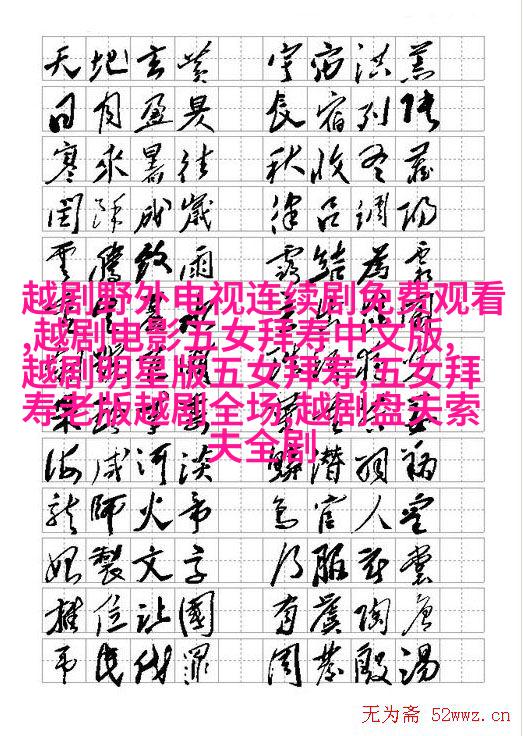 天地玄黃 宇宙洪荒
日月盈昃 辰宿列張
寒來暑往 秋收冬藏
閏餘成歲 律呂調陽
雲騰致雨 露結為霜
越剧野外电视连续剧免费观看
,越剧电影五女拜寿中文版,
越剧明星版五女拜寿,五女拜
寿老版越剧全场,越剧盘夫索
夫全剧
海咸河淡 鱗潛羽翔
龍師火帝 鳥官人皇
始製文字 乃服衣裳
推位讓國 有虞陶唐
弔民伐罪 周發殷湯
无为斋 52wwz.cn